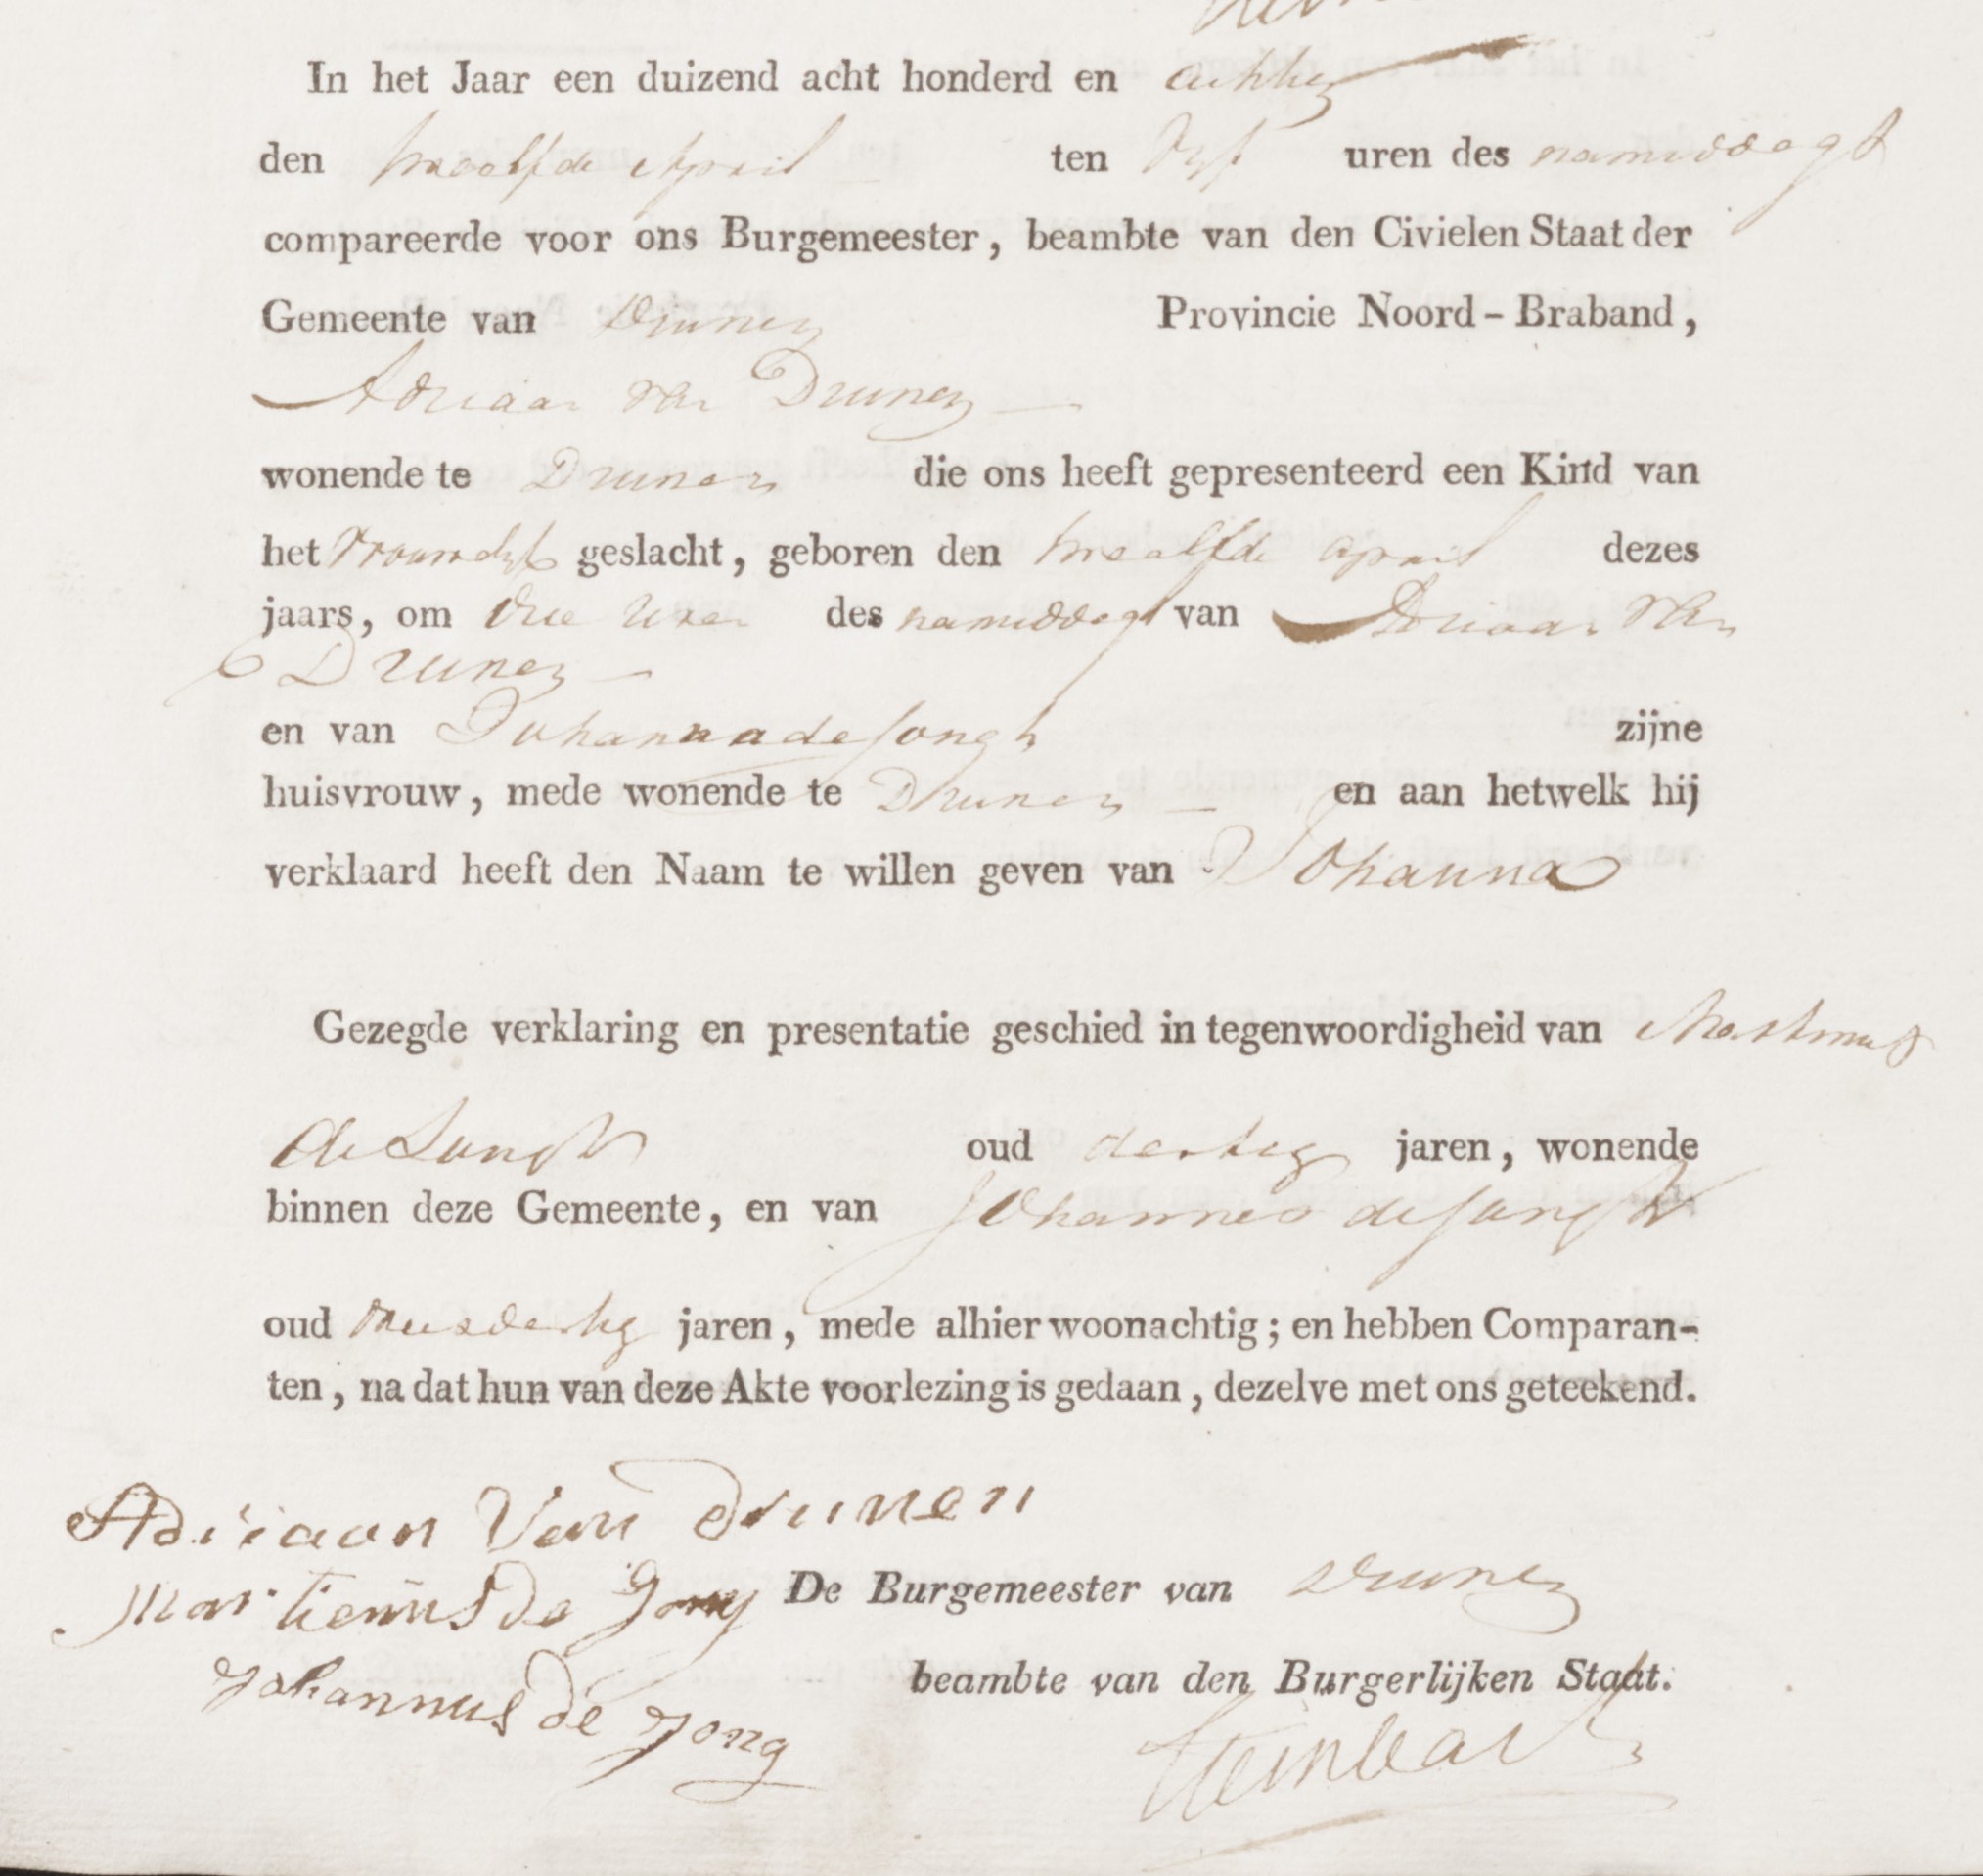 In het Jaar een duizend acht honderd en achtien
den twaalfde April ten vyf uren des namiddags
compareerde voor ons Burgemeester, beambte van den Civielen Staat der
Gemeente van Drunen Provincie Noord-Braband,
Adriaan van Drunen
wonende te Drunen die ons heeft gepresenteerd een Kind van
het geslacht, geboren den twaalfde april dezes
jaars, om drie uren des namiddags van Adriaan van
Drunen
en van Johanna de Jongh zijne
huisvrouw, mede wonende te Drunen en aan hetwelk hij
verklaard heeft den Naam te willen geven van Johanna
Gezegde verklaring en presentatie geschied in tegenwoordigheid van Martinus
de Jongh oud dertig jaren, wonende
binnen deze Gemeente, en van Johannes de Jongh
oud jaren, mede alhier woonachtig; en hebben Comparan-
ten, na dat hun van deze Akte voorlezing is gedaan, dezelve met ons geteekend.
Adriaan Van Drunen
Martienus De Jong De Burgemeester van Drunen
Johannus de Jong beambte van den Burgerlijken Staat.